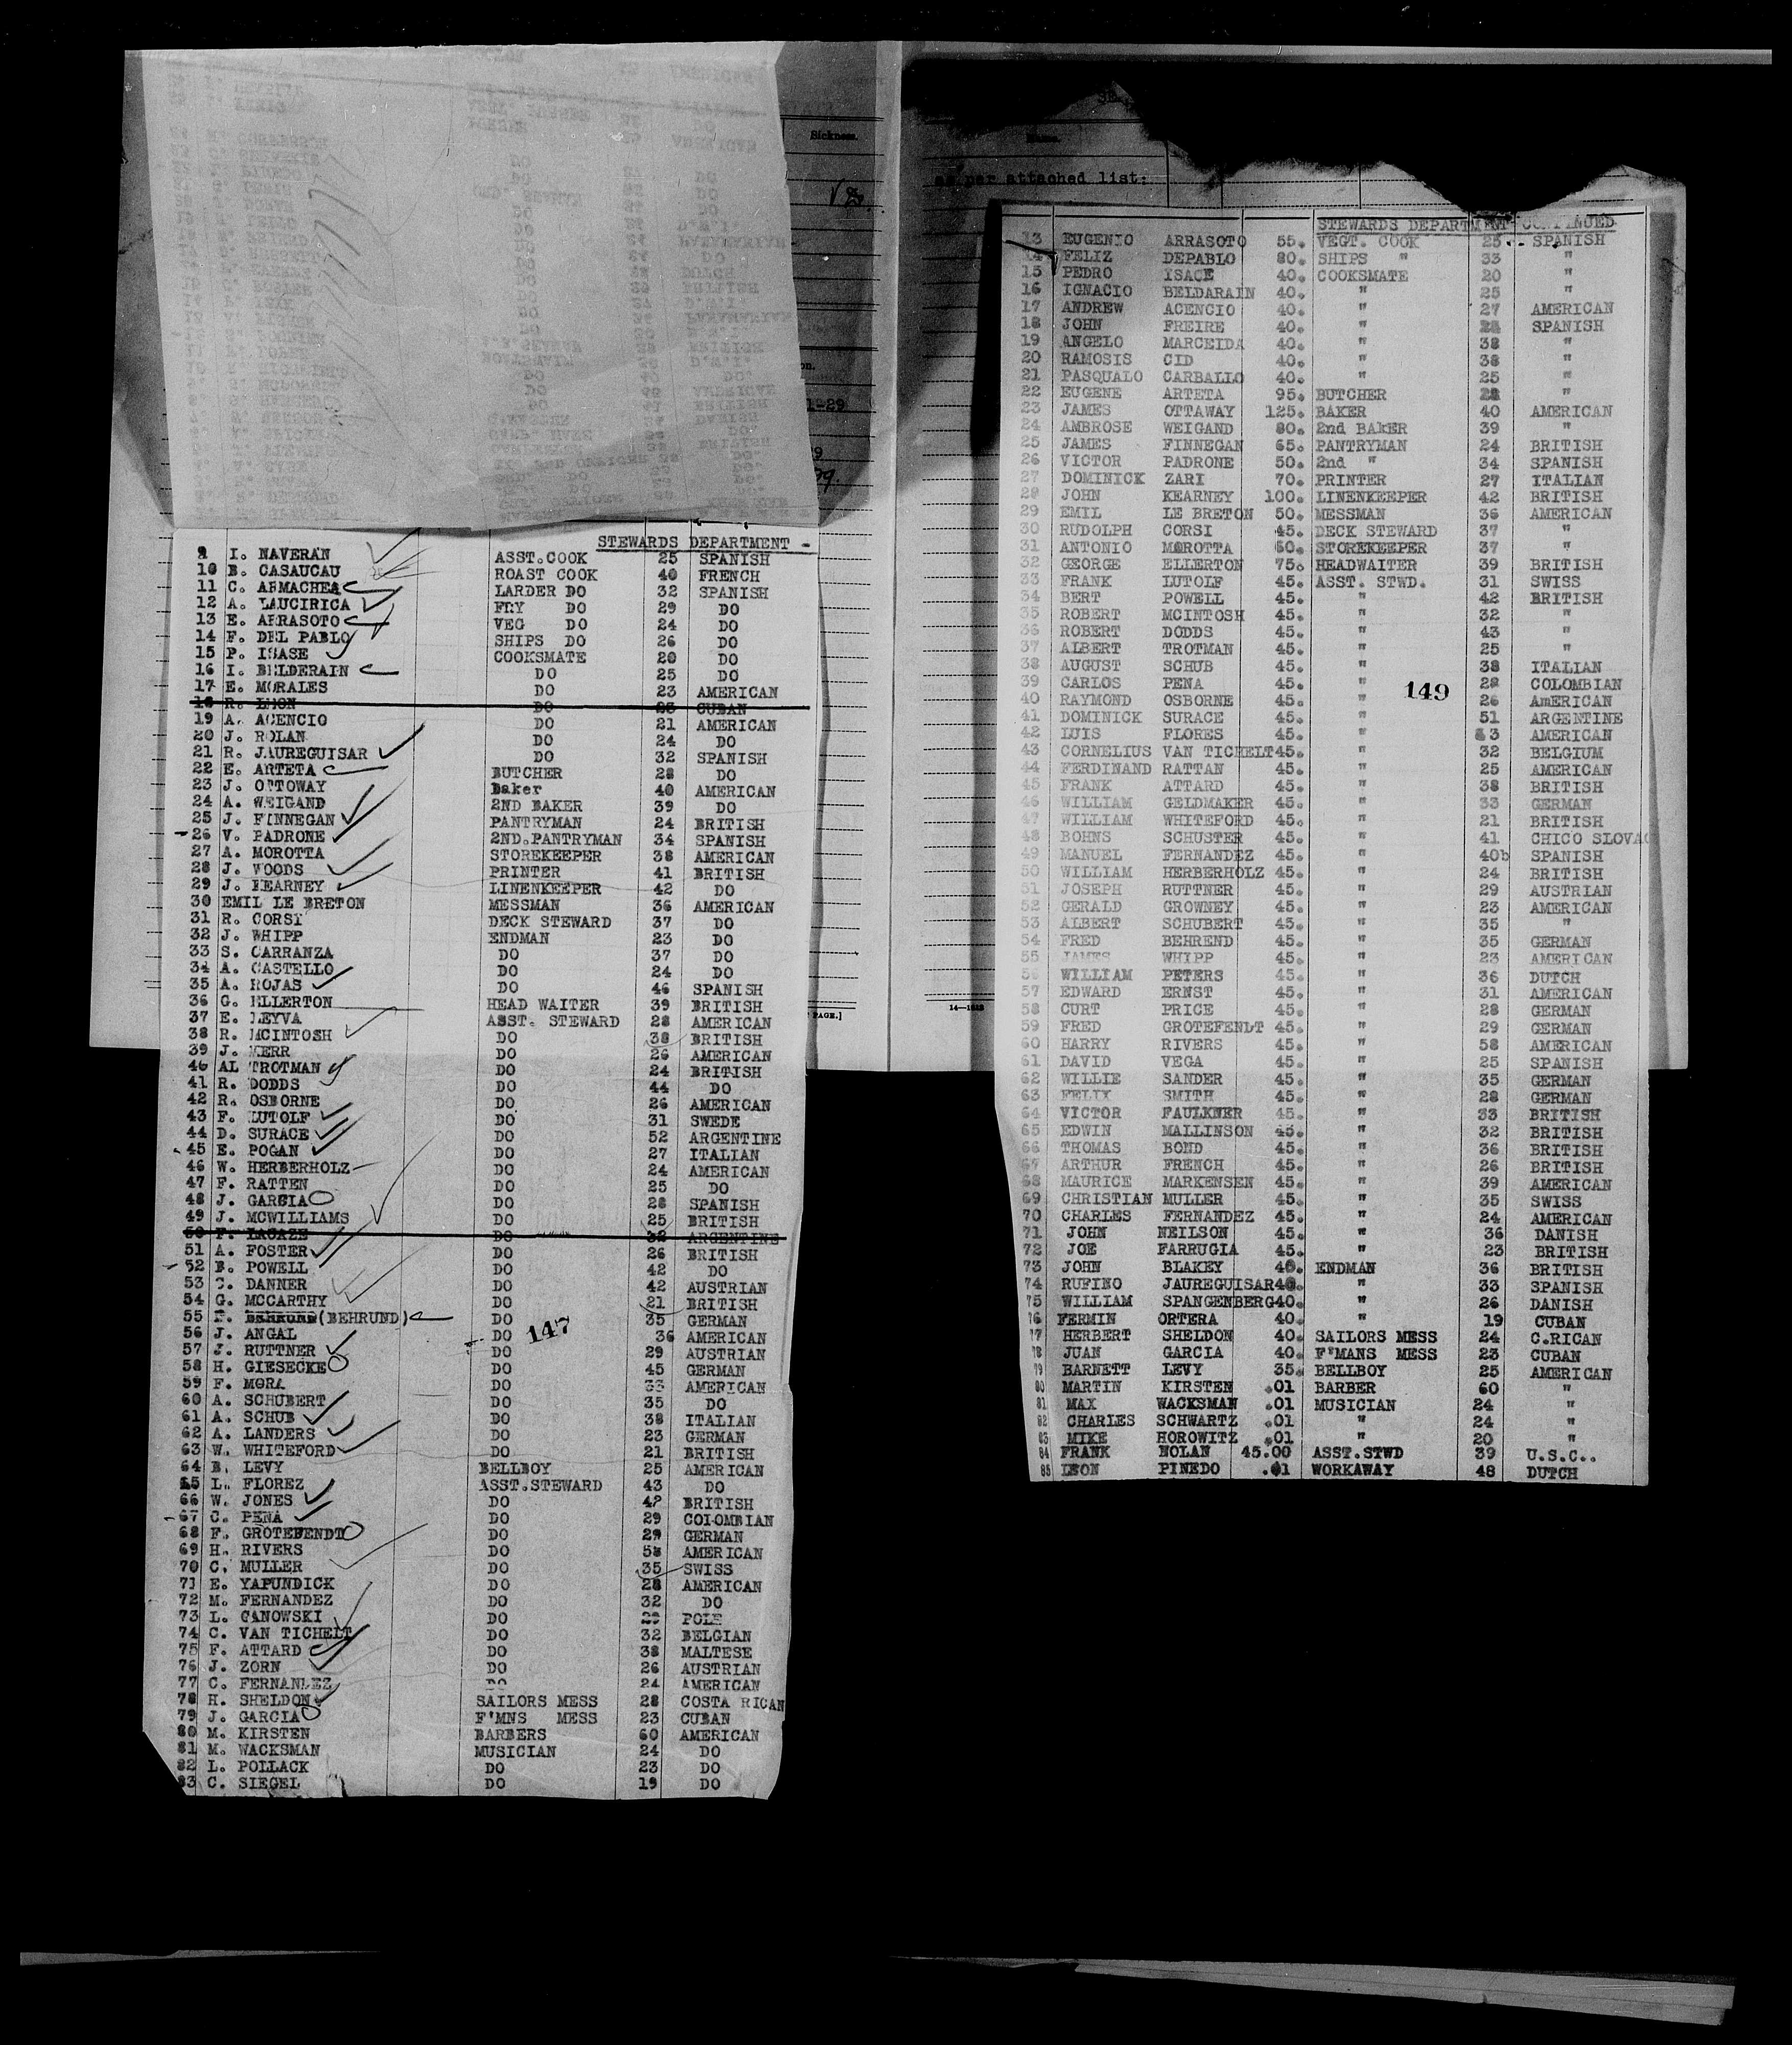 Sickness.
as per attached list:
STEWARDS DEPARTMENT -
9 I. NAVERAN ASST.COOK 25 SPANISH
10 B. CASAUCAU ROAST COOK 40 FRENCH
11 C. ARMACHEA LARDER DO 32 SPANISH
12 A. LAUCIRICA FRY DO 29 DO
13 E. ARRASOTO VEG DO 24 DO
14 F. DEL PABLO SHIPS DO 26 DO
15 P. ISASE COOKSMATE 20 DO
16 I. BELDERAIN DO 25 DO
17 E. MORALES DO 23 AMERICAN
18 R. LEON DO 23 CUBAN
19 A. ACENCIO DO 21 AMERICAN
20 J. ROLAN DO 24 DO
21 R. JAUREGUISAR DO 32 SPANISH
22 E. ARTETA BUTCHER 28 DO
23 J. OTTOWAY Baker 40 AMERICAN
24 A. WEIGAND 2ND BAKER 39 DO
25 J. FINNEGAN PANTRYMAN 24 BRITISH
-26 V. PADRONE 2ND.PANTRYMAN 34 SPANISH
27 A. MOROTTA STOREKEEPER 38 AMERICAN
28 J. WOODS PRINTER 41 BRITISH
29 J. KEARNEY LINENKEEPER 42 DO
30 EMIL LE BRETON MESSMAN 36 AMERICAN
31 R. CORSI DECK STEWARD 37 DO
32 J. WHIPP ENDMAN 23 DO
33 S. CARRANZA DO 37 DO
34 A. CASTELLO DO 24 DO
35 A. ROJAS DO 46 SPANISH
36 G. ELLERTON HEAD WAITER 39 BRITISH
37 E. LEYVA ASST. STEWARD 28 AMERICAN
38 R. MCINTOSH DO 38 BRITISH
39 J. KERR DO 26 AMERICAN
40 AL TROTMAN DO 24 BRITISH
41 R. DODDS DO 44 DO
42 R. OSBORNE DO 26 AMERICAN
43 F. LUTOLF DO 31 SWEDE
44 D. SURACE DO 52 ARGENTINE
45 E. POGAN DO 27 ITALIAN
46 W. HERBERHOLZ DO 24 AMERICAN
47 F. RATTEN DO 25 DO
48 J. GARCIA DO 28 SPANISH
49 J. MCWILLIAMS DO 25 BRITISH
50 F. LACAZE DO 32 ARGENTINE
51 A. FOSTER DO 26 BRITISH
52 B. POWELL DO 42 DO
53 C. DANNER DO 42 AUSTRIAN
54 G. MCCARTHY DO 21 BRITISH
55 (BEHRUND) DO 35 GERMAN
147
56 J. ANGAL DO 36 AMERICAN
57 J. RUTTNER DO 29 AUSTRIAN
58 H. GIESECKE DO 45 GERMAN
59 F. MORA DO 33 AMERICAN
60 A. SCHUBERT DO 35 DO
61 A. SCHUB DO 38 ITALIAN
62 A. LANDERS DO 23 GERMAN
63 W. WHITEFORD DO 21 BRITISH
64 B. LEVY BELLBOY 25 AMERICAN
65 L. FLOREZ ASST.STEWARD 43 DO
66 W. JONES DO 42 BRITISH
-67 C. PENA DO 29 COLOMBIAN
68 F. GROTEFENDT DO 29 GERMAN
69 H. RIVERS DO 58 AMERICAN
70 C. MULLER DO 35 SWISS
71 E. YAPUNDICK DO 28 AMERICAN
72 M. FERNANDEZ DO 32 DO
73 L. CANOWSKI DO 29 POLE
74 C. VAN TICHELT DO 32 BELGIAN
75 F. ATTARD DO 38 MALTESE
76 J. ZORN DO 26 AUSTRIAN
77 C. FERNANDEZ DO 24 AMERICAN
78 H. SHELDON SAILORS MESS 28 COSTA RICAN
79 J. GARCIA F'MNS MESS 23 CUBAN
80 M. KIRSTEN BARBERS 60 AMERICAN
81 M. WACKSMAN MUSICIAN 24 DO
82 L. POLLACK DO 23 DO
83 C. SIEGEL DO 19 DO
STEWARDS DEPARTMENT CONTINUED
13 EUGENIO ARRASOTO 55. VEGT. COOK 25 SPANISH
14 FELIZ DEPABLO 80. SHIPS " 33 "
15 PEDRO YSACE 40. COOKSMATE 20 "
16 IGNACIO BELDARAIN 40. " 25 "
17 ANDREW ACENCIO 40. " 27 AMERICAN
18 JOHN FREIRE 40. " SPANISH
19 ANGELO MARCEIDA 40. " 38 "
20 RAMOSIS CID 40. " 38 "
21 PASQUALO CARBALLO 40. " 25 "
22 EUGENE ARTETA 95. BUTCHER 28 "
23 JAMES OTTAWAY 125. BAKER 40 AMERICAN
24 AMBROSE WEIGAND 80. 2nd BAKER 39 "
25 JAMES FINNEGAN 65. PANTRYMAN 24 BRITISH
26 VICTOR PADRONE 50. 2nd " 34 SPANISH
27 DOMINICK ZARI 70. PRINTER 27 ITALIAN
28 JOHN KEARNEY 100. LINENKEEPER 42 BRITISH
29 EMIL LE BRETON 50. MESSMAN 36 AMERICAN
30 RUDOLPH CORSI 45. DECK STEWARD 37 "
31 ANTONIO MOROTTA 60. STOREKEEPER 37 "
32 GEORGE ELLERTON 75. HEADWAITER 39 BRITISH
33 FRANK LUTOLF 45. ASST. STWD. 31 SWISS
34 BERT POWELL 45. " 42 BRITISH
35 ROBERT MCINTOSH 45. " 32 "
36 ROBERT DODDS 45. " 43 "
37 ALBERT TROTMAN 45. " 25 "
38 AUGUST SCHUB 45. " 38 ITALIAN
39 CARLOS PENA 45. " 28 COLOMBIAN
149
40 RAYMOND OSBORNE 45. " 26 AmERICAN
41 DOMINICK SURACE 45. " 51 ARGENTINE
42 LUIS FLORES 45. " 43 AMERICAN
43 CORNELIUS VAN TICHELT45. " 32 BELGIUM
44 FERDINAND RATTAN 45. " 25 AMERICAN
45 FRANK ATTARD 45. " 38 BRITISH
46 WILLIAM GELDMAKER 45. " 33 GERMAN
47 WILLIAM WHITEFORD 45. " 21 BRITISH
48 BOHNS SCHUSTER 45. " 41 CHICO SLOVAC
49 MANUEL FERNANDEZ 45. " 40b SPANISH
50 WILLIAM HERBERHOLZ 45. " 24 BRITISH
51 JOSEPH RUTTNER 45. " 29 AUSTRIAN
52 GERALD GROWNEY 45. " 23 AMERICAN
53 ALBERT SCHUBERT 45. " 35 "
54 FRED BEHREND 45. " 35 GERMAN
55 JAMES WHIPP 45. " 23 AMERICAN
56 WILLIAM PETERS 45. " 36 DUTCH
57 EDWARD ERNST 45. " 31 AMERICAN
58 CURT PRICE 45. " 28 GERMAN
59 FRED GROTEFENDT 45. " 29 GERMAN
60 HARRY RIVERS 45. " 58 AMERICAN
61 DAVID VEGA 45. " 25 SPANISH
62 WILLIE SANDER 45. " 35 GERMAN
63 FELIX SMITH 45. " 28 GERMAN
64 VICTOR FAULKNER 45. " 33 BRITISH
65 EDWIN MALLINSON 45. " 32 BRITISH
66 THOMAS BOND 45. " 36 BRITISH
67 ARTHUR FRENCH 45. " 26 BRITISH
68 MAURICE MARKENSEN 45. " 39 AMERICAN
69 CHRISTIAN MULLER 45. " 35 SWISS
70 CHARLES FERNANDEZ 45. " 24 AMERICAN
71 JOHN NEILSON 45. " 36 DANISH
72 JOE FARRUGIA 45. " 23 BRITISH
73 JOHN BLAKEY 40. ENDMAN 36 BRITISH
74 RUFINO JAUREGUISAR40. " 33 SPANISH
75 WILLIAM SPANGENBERG40. " 26 DANISH
76 FERMIN ORTERA 40. " 19 CUBAN
77 HERBERT SHELDON 40. SAILORS MESS 24 C.RICAN
78 JUAN GARCIA 40. F'MANS MESS 23 CUBAN
79 BARNETT LEVY 35. BELLBOY 25 AMERICAN
80 MARTIN KIRSTEN .01 BARBER 60 "
81 MAX WACKSMAN .01 MUSICIAN 24 "
82 CHARLES SCHWARTZ .01 " 24 "
83 MIKE HOROWITZ .01 " 20 "
84 FRANK NOLAN 45.00 ASST.STWD 39 U.S.C..
85 LEON PINEDO .01 WORKAWAY 48 DUTCH